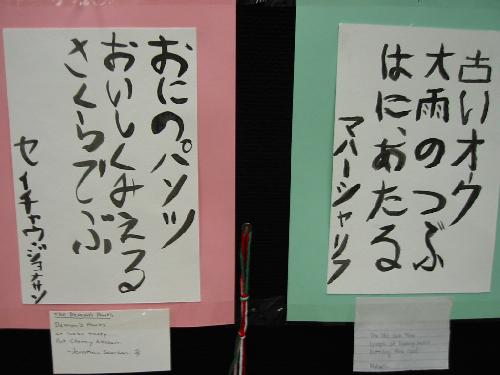 おにのパンツ
おいしくみえる
さくらでぶ
セイチャウジョナサン
The Demon's Pants
Demon's Pants
tasty
But Cherry Blossom.
-Jonathan
古いオク
大雨のつぶ
はに、あたる
マハーシャリフ
The old oak Tree
Drops of heavy rain
hitting the leaf